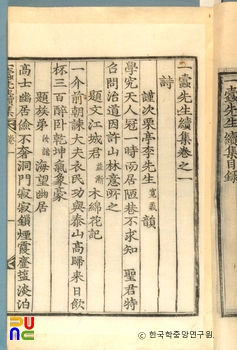 一蠹先生續集卷之一
詩
謹次栗亭李先生寬義韻
學究天人冠一時而居陋巷不求知 聖君特
召問治道因許山林意所之
題文江城君益漸木綿花記
一介前朝諫大夫衣民功與泰山高歸來日飲
杯三百醉臥乾坤氣象豪
題族弟汝諧海望幽居
高士幽居儉不奢洞門寂寂鎖煙霞齏鹽淡泊
一蠹先生續集目錄
卷一
PUNC
ⓒ 한국학중앙연구원